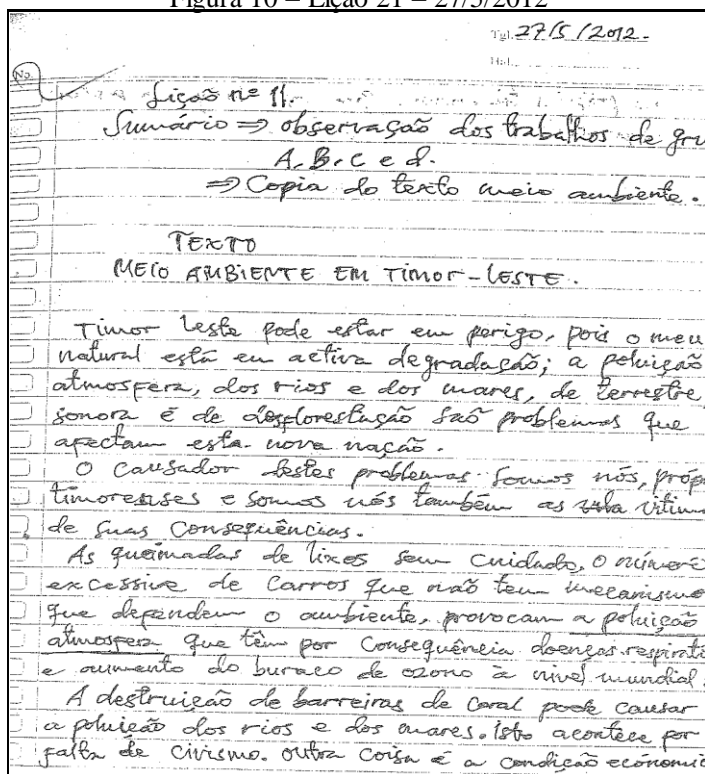 Figura 10 – Lição 21 – 27/5/2012
Tgl. 27/5/2012.
No.
Lição nº 11.
Sumário ⇒ observação dos trabalhos de gru
A, B, C e d.
⇒ Copia do texto meio ambiente.
TEXTO
MEIO AMBIENTE EM TIMOR-LESTE.
Timor Leste pode estar em perigo, pois o meu
natural está em activa degradação; a poluição
atmosfera, dos rios e dos mares, de terrestre,
sonora é de desflorestação são problemas que
afectam esta nova nação.
O causador destes problemas somos nós, própr
timorenses e somos nós também as vitim
de suas consequências.
As queimadas de lixos sem cuidado, o número
excessive de carros que não tem mecanismo
que dependem o ambiente, provocam a poluição
atmosfera que têm por consequência doenças respirató
e aumento do buraco de ozono à nivel mundial.
A destruição de barreiras de coral pode causar
a poluição dos rios e dos mares. Isto acontece por
falta de civismo. outra coisa é a condição económic